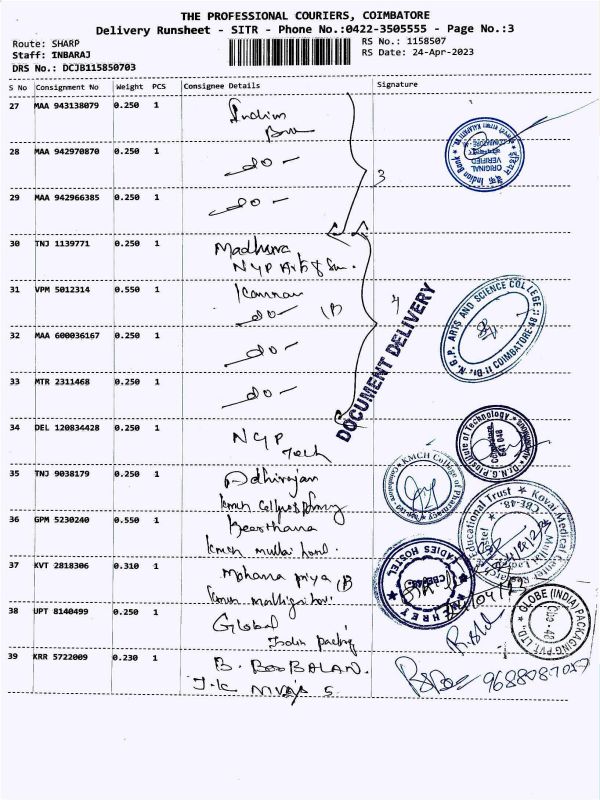 THE PROFESSIONAL COURIERS, COIMBATORE
Delivery Runsheet - SITR - Phone No.:0422-3505555 - Page No.:3
Route: SHARP
RS No.: 1158507
Staff: INBARAJ
RS Date: 24-Apr-2023
DRS No.: DCJB115850703
S No Consignment No Weight PCS Consignee Details Signature
27 MAA 943138079 0.250 1 Indian
28 MAA 942970870 0.250 1 - do -
3
29 MAA 942966385 0.250 1 - do -
30 TNJ 1139771 0.250 1 Madhura
NGP Arts &
31 VPM 5012314 0.550 1 Kannan
- do - (B
4
32 MAA 600036167 0.250 1 - do -
33 MTR 2311468 0.250 1 - do -
DOCUMENT DELIVERY
34 DEL 120834428 0.250 1 NGP
Tech
35 TNJ 9038179 0.250 1 Adhirajan
36 GPM 5230240 0.550 1 Keerthana
kmch mullai
37 KVT 2818306 0.310 1 Mohana priya (B
kmch
38 UPT 8140499 0.250 1 Global
India packing
39 KRR 5722009 0.230 1 B. BooBALAN.
J.K
9688087057
Indian Bank
ORIGINAL VERIFIED
N.G.P. ARTS AND SCIENCE COLLEGE
COIMBATORE-48
Institute of Technology
641 048
KMCH College of Pharmacy
Kovai Medical Center Research Educational Trust
CBE-48
LADIES HOSTEL
GLOBE (INDIA) PACKAGING PVT. LTD.